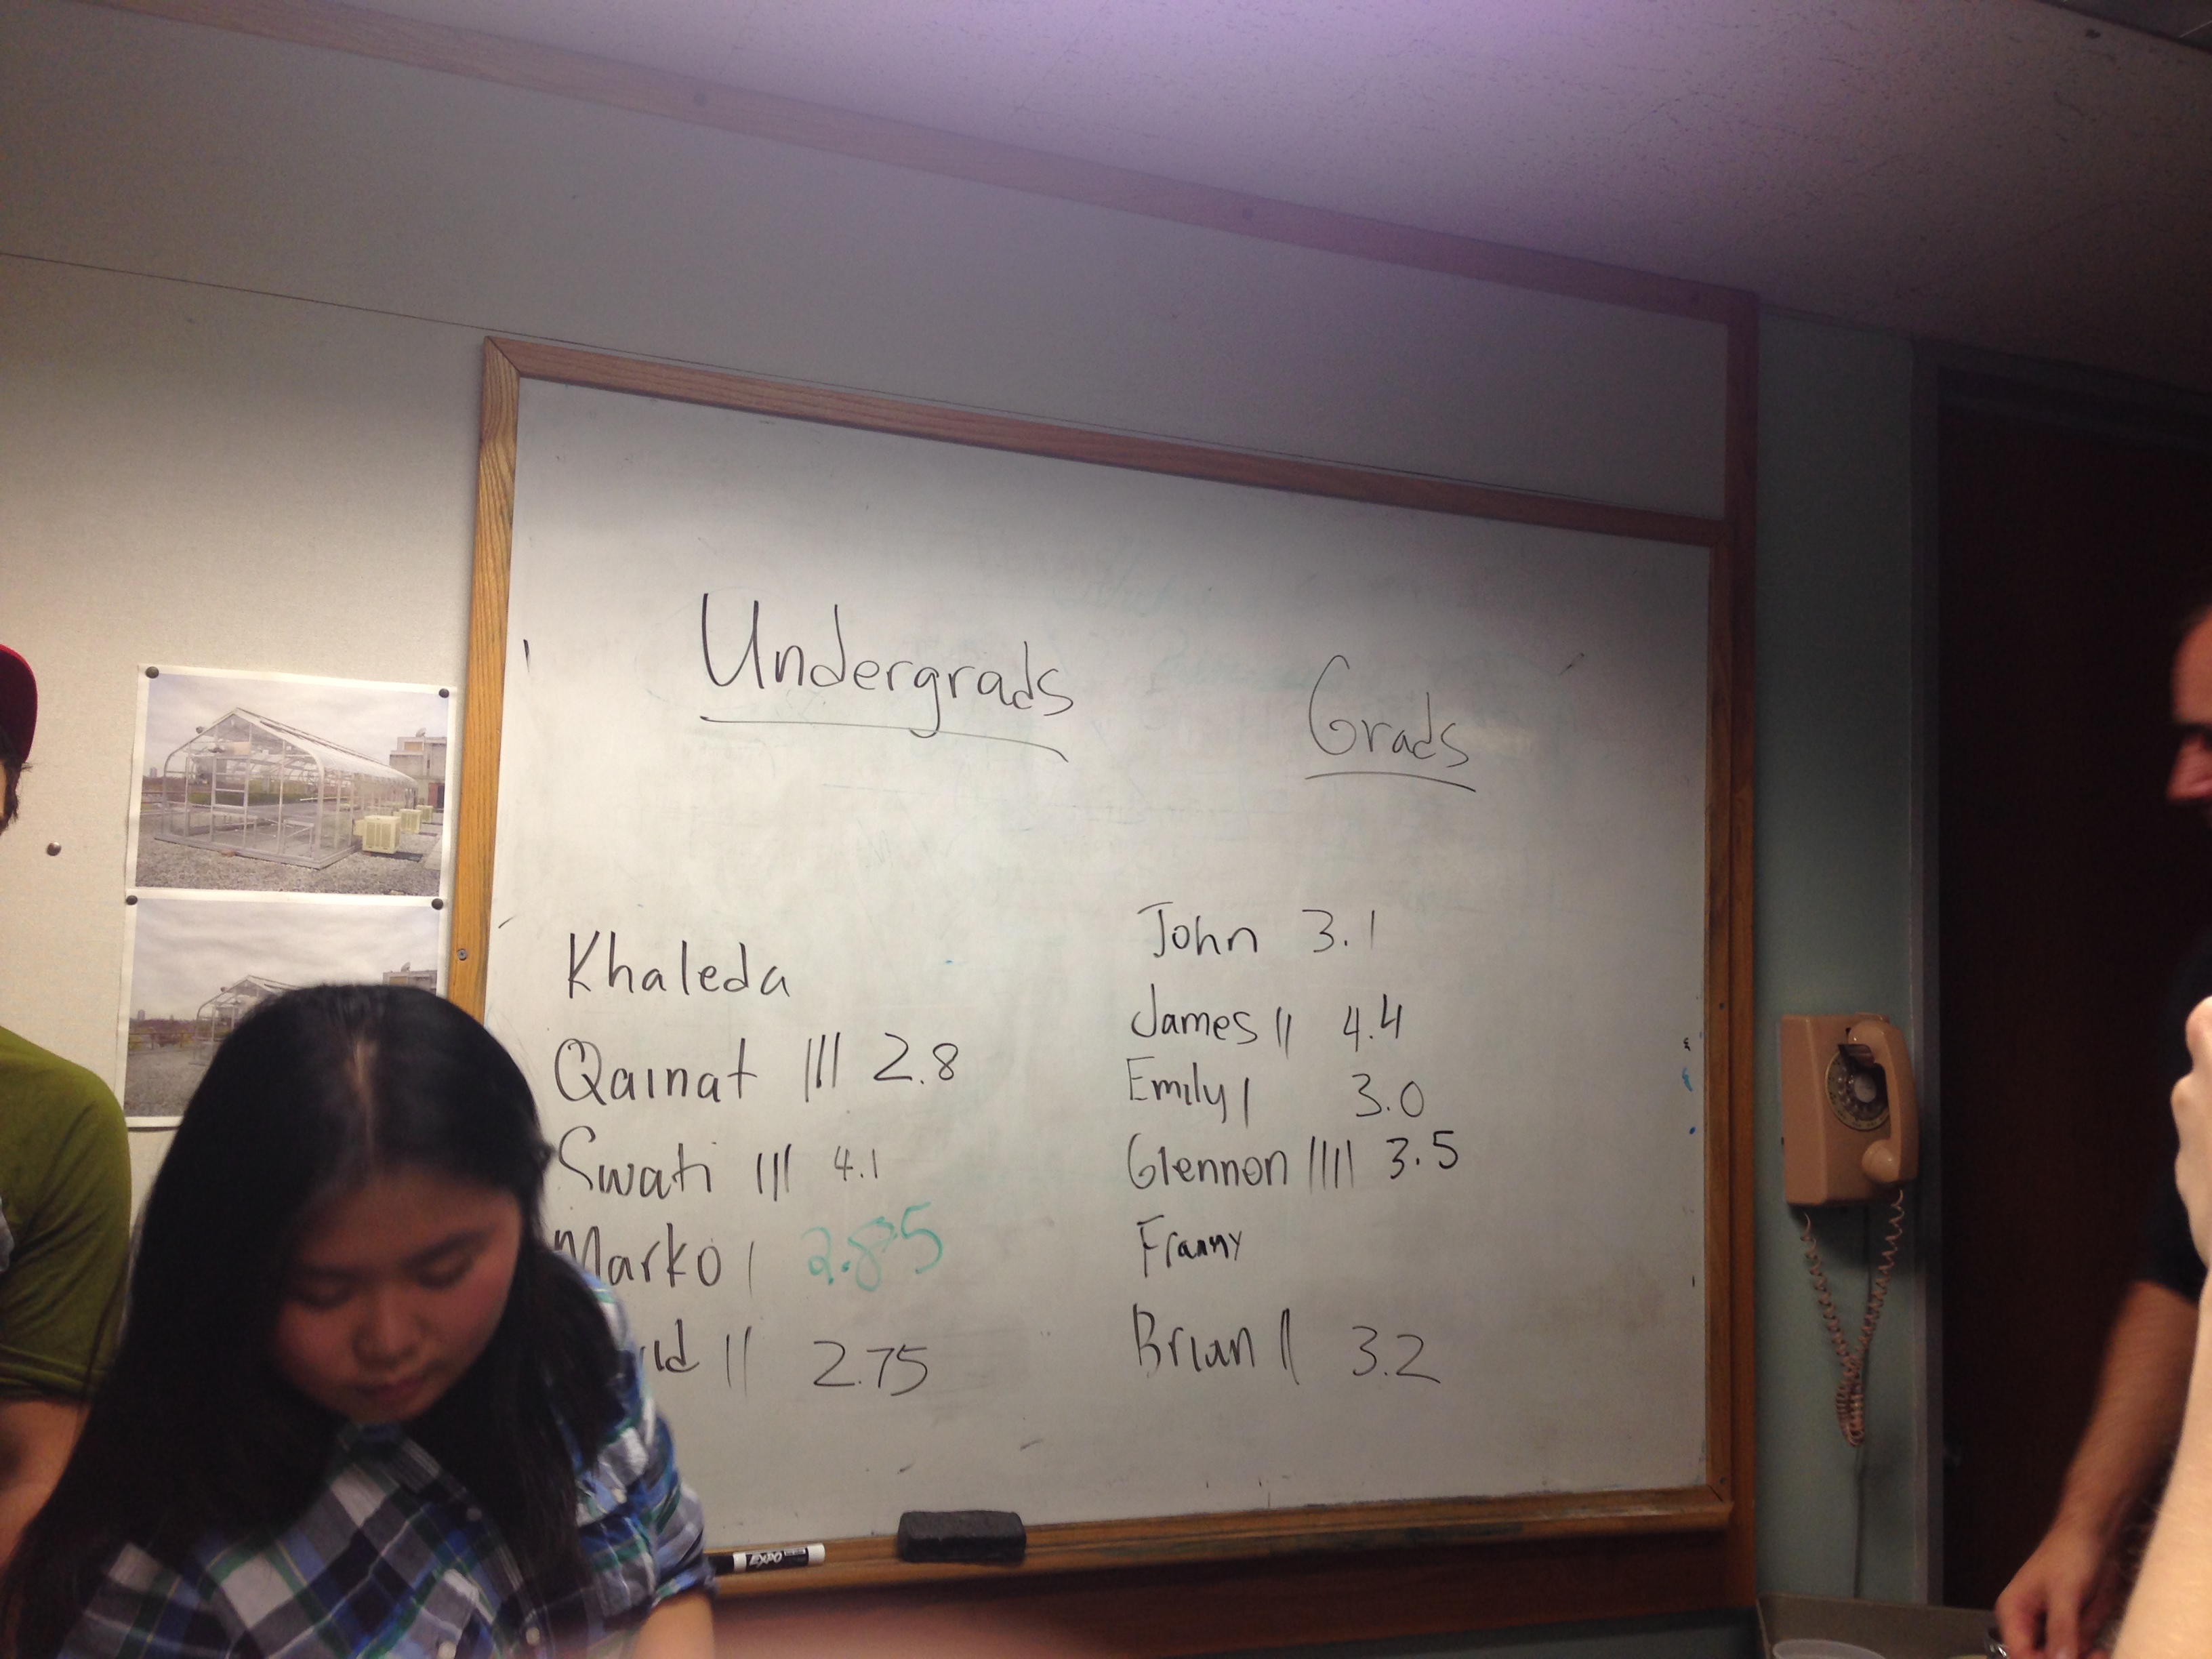 Undergrads
Khaleda
Qainat ||| 2.8
Swati ||| 4.1
Marko | 2.85
|| 2.75
Grads
John 3.1
James || 4.4
Emily | 3.0
Glennon |||| 3.5
Franny
Brian || 3.2
EXPO